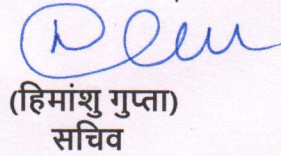 (हिमांशु गुप्ता)
सचिव